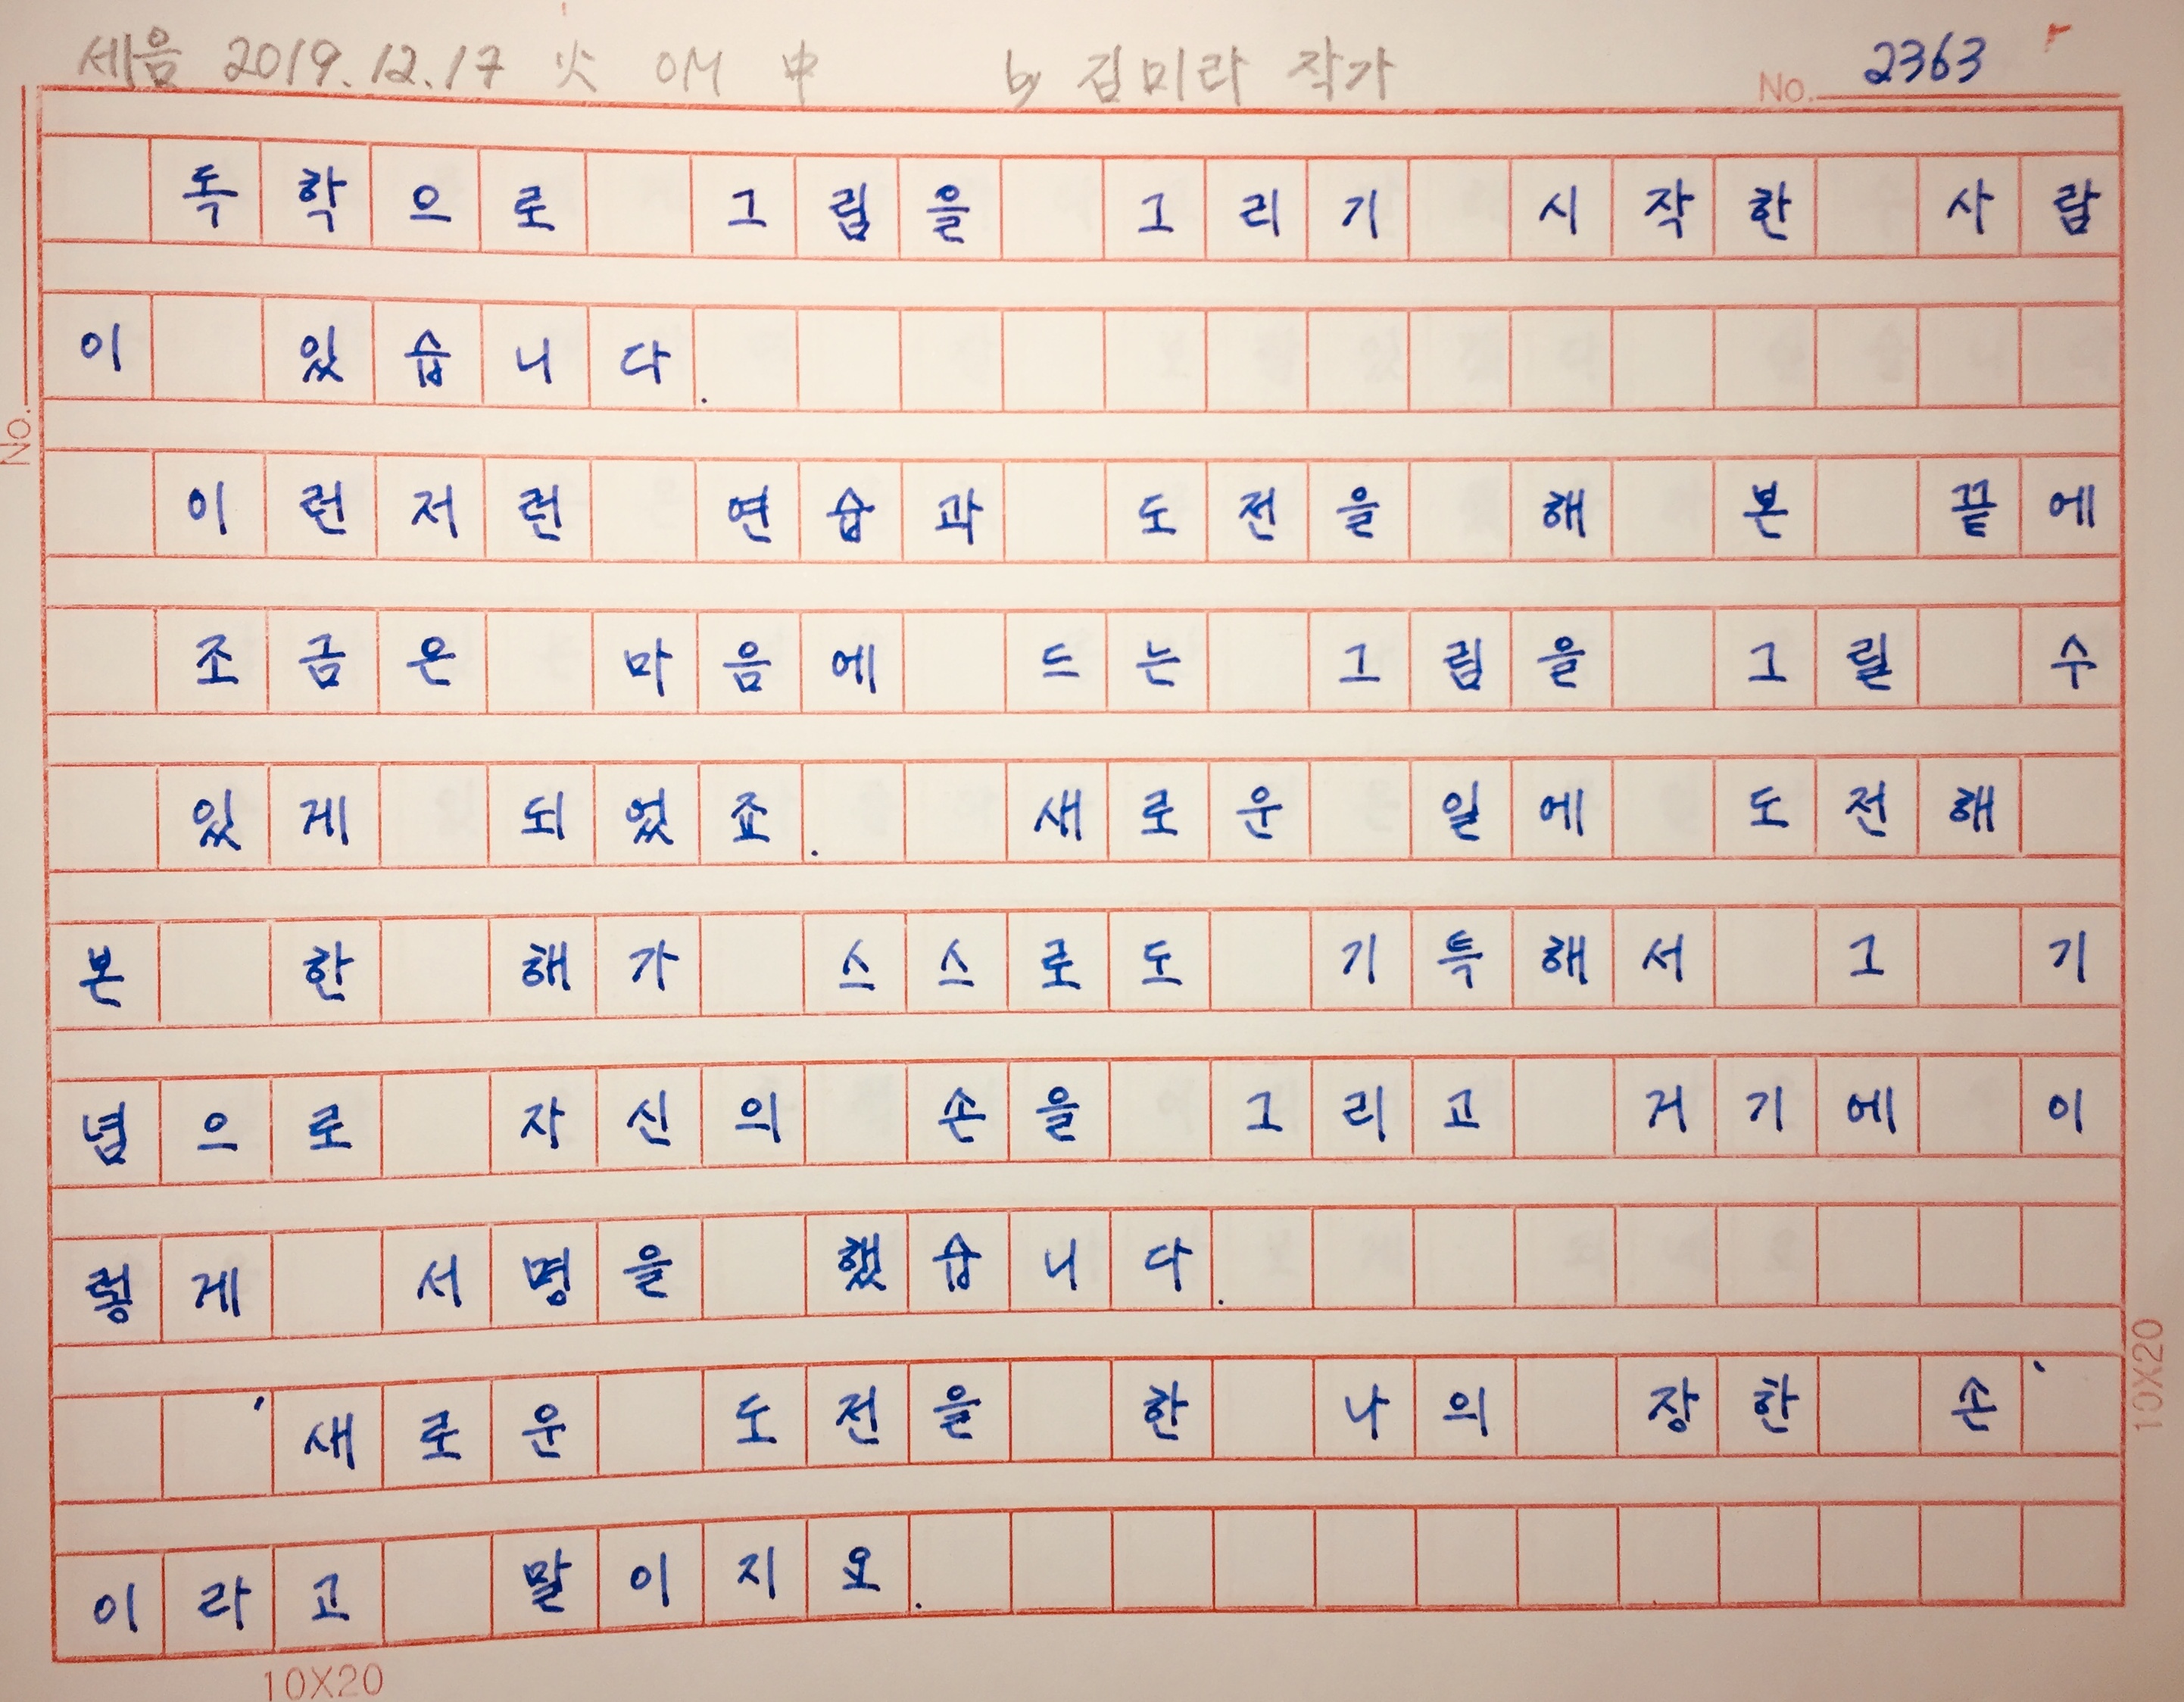 세음 2019.12.17 火 OM 中 by 김미라 작가
No. 2363
독학으로 그림을 그리기 시작한 사람
이 있습니다.
이런저런 연습과 도전을 해 본 끝에
조금은 마음에 드는 그림을 그릴 수
있게 되었죠. 새로운 일에 도전해
본 한 해가 스스로도 기특해서 그 기
념으로 자신의 손을 그리고 거기에 이
렇게 서명을 했습니다.
'새로운 도전을 한 나의 장한 손'
이라고 말이지요.
No.
10X20
10X20